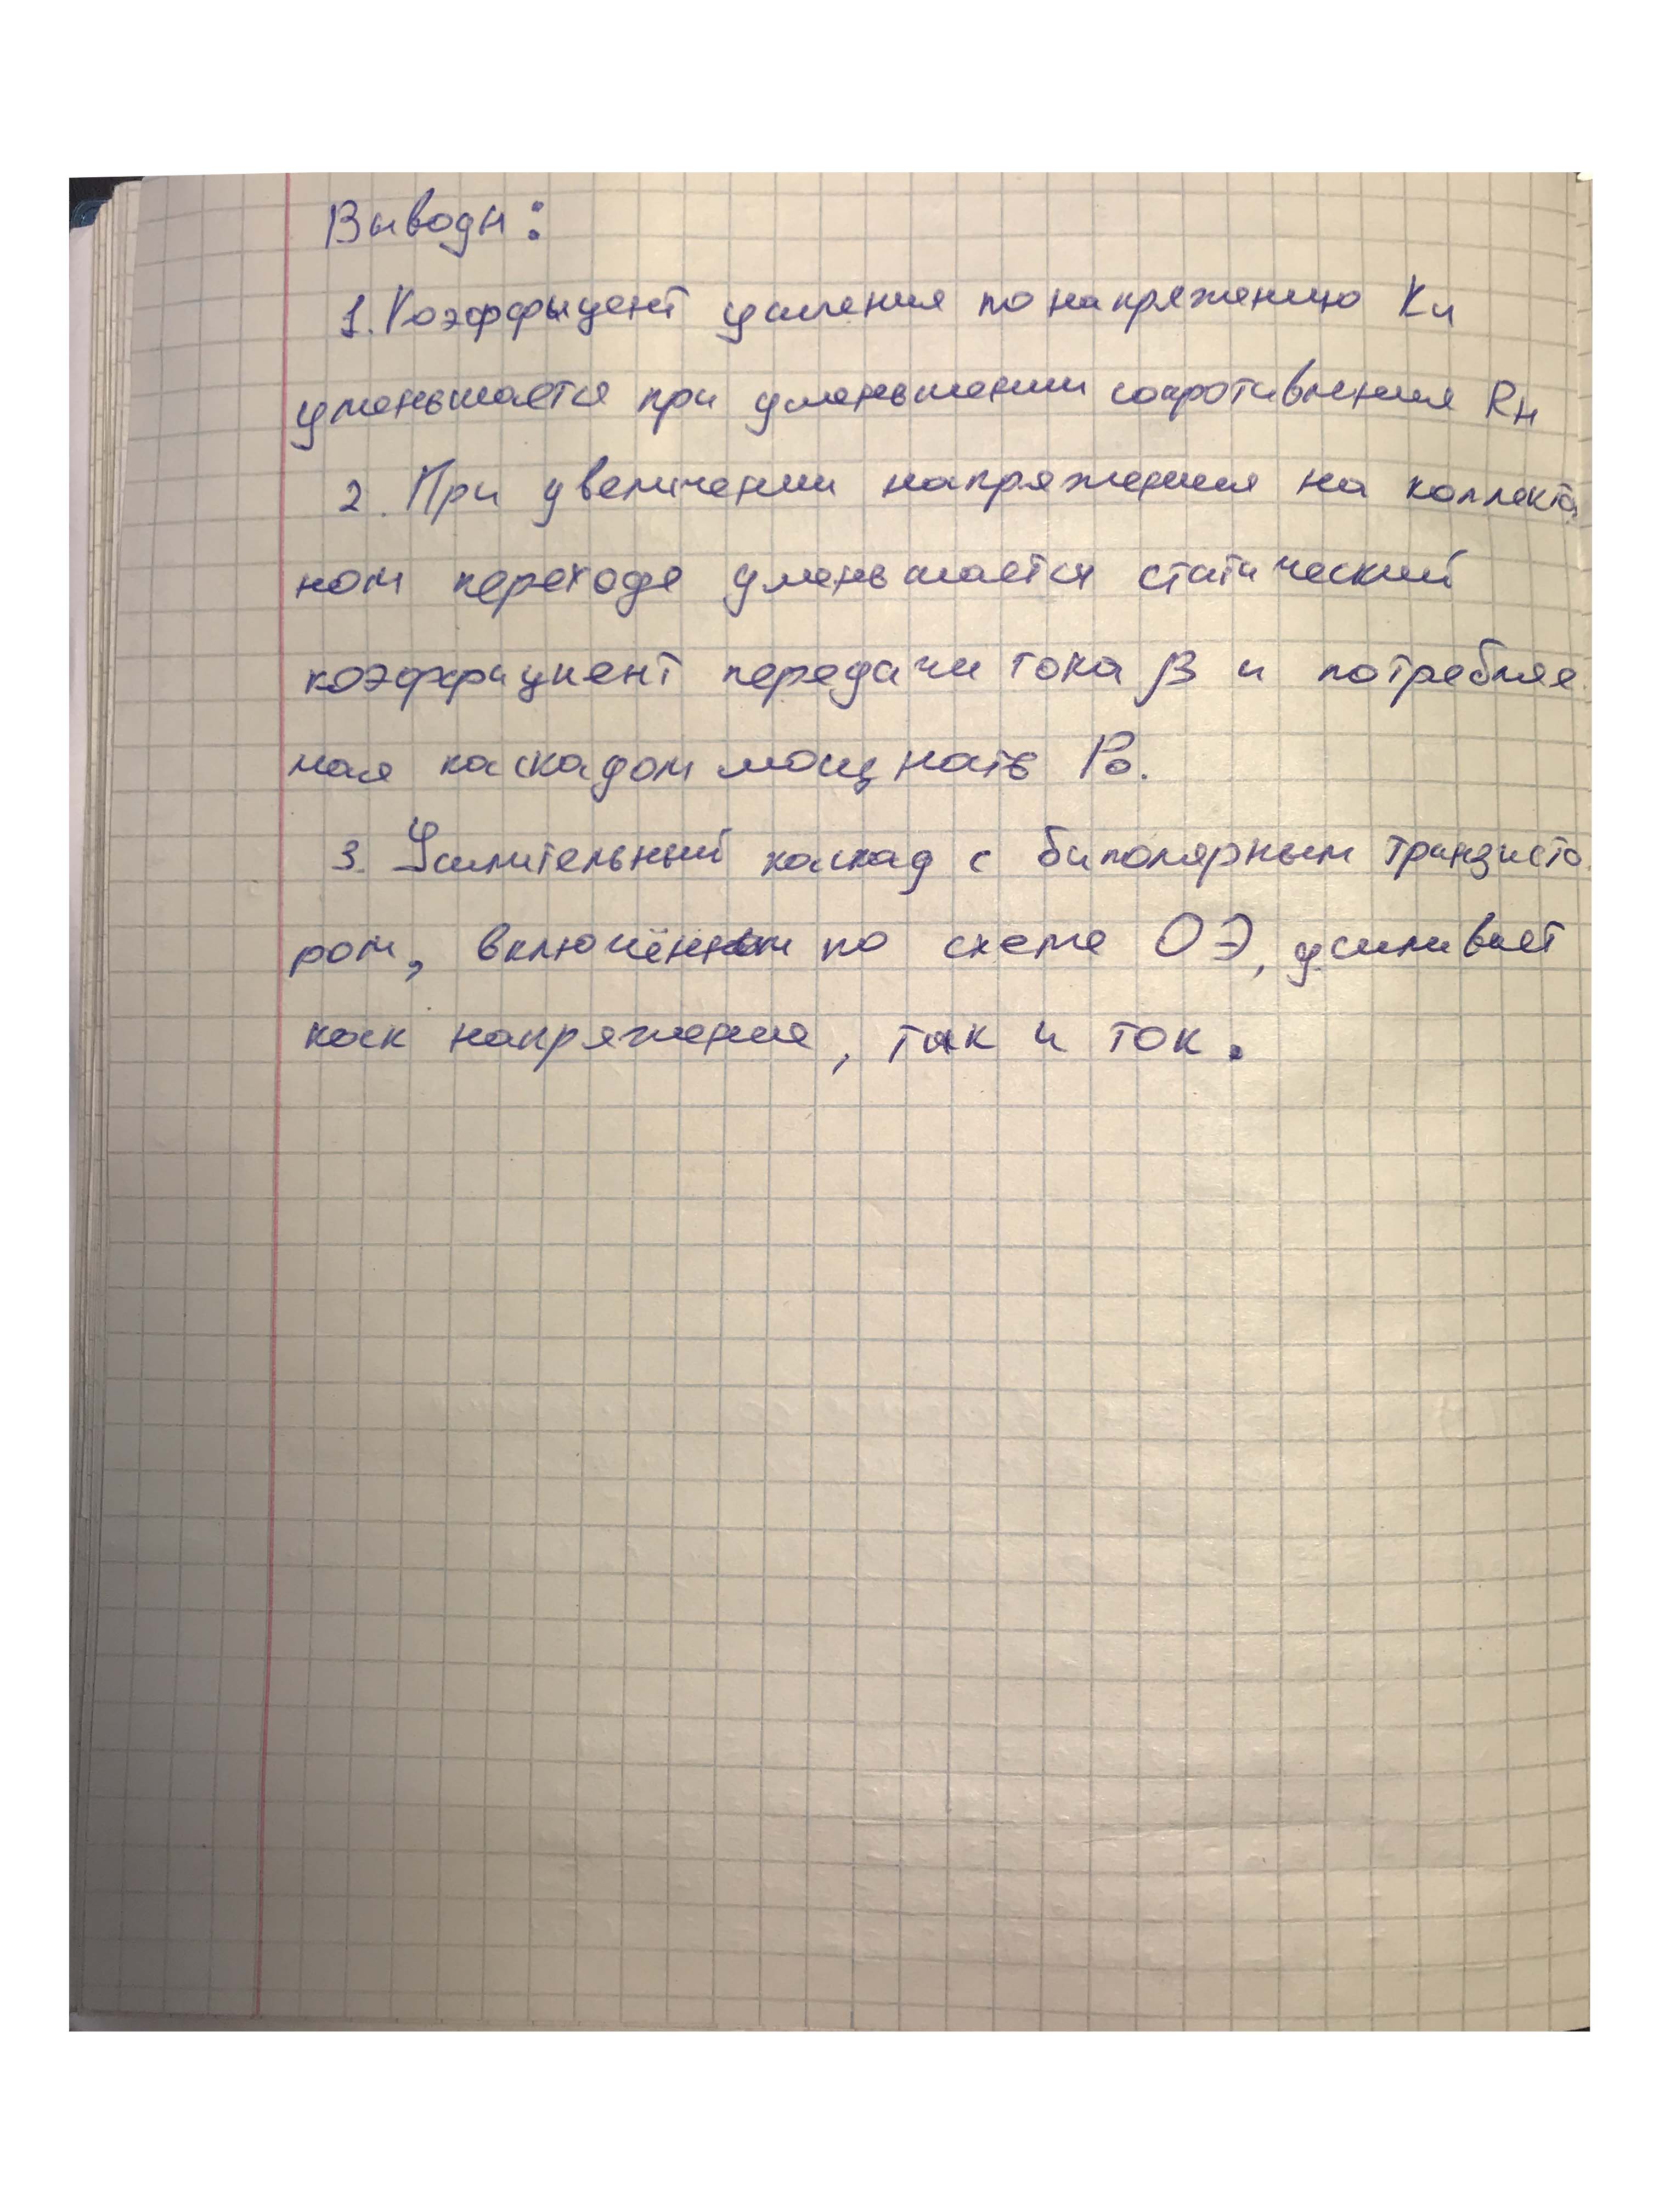 Выводы:
1. Коэффицент усиления по напряжению Ku
уменьшается при уменьшении сопротивления Rн
2. При увеличении напряжения на коллекто
ном переходе уменьшается статический
коэффициент передачи тока β и потребляе
мая каскадом мощность P₀.
3. Усилительный каскад с биполярным транзисто
ром, включённым по схеме ОЭ, усиливает
как напряжения, так и ток.